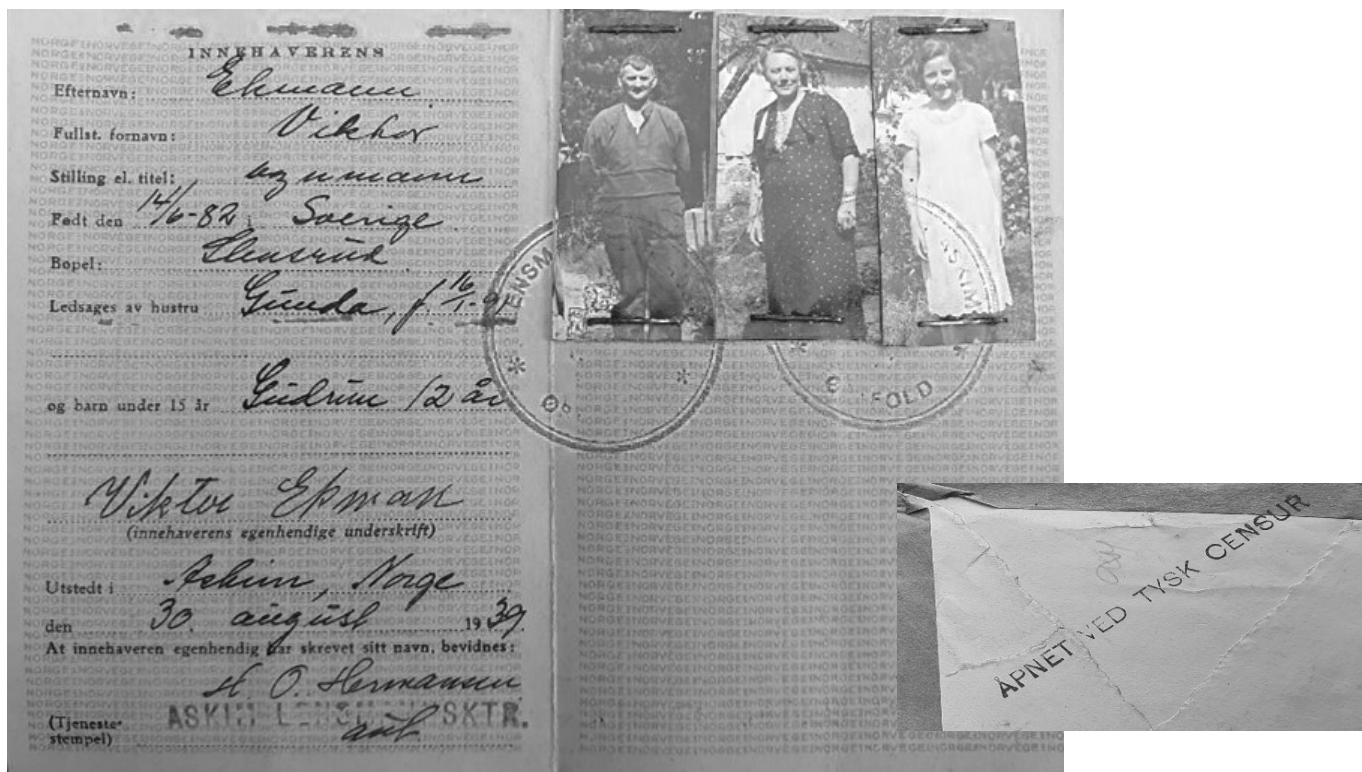 INNEHAVERENS
Efternavn: Ekmann
Fullst. fornavn: Vikhor
Stilling el. titel:
Født den 14/6-82 i Sverige
Bopel: Slensrud
Ledsages av hustru Gunda, f. 16/1-91
og barn under 15 år Gudrun 12 år
Viktor Ekman
(innehaverens egenhendige underskrift)
Utstedt i Askim, Norge
den 30. august 1939
At innehaveren egenhendig har skrevet sitt navn, bevidnes:
H. O. Hermansen
(Tjeneste- ASKIM LENSM SKTR.
stempel) aut.
ENSM
SKIM
FOLD
ÅPNET VED TYSK CENSUR